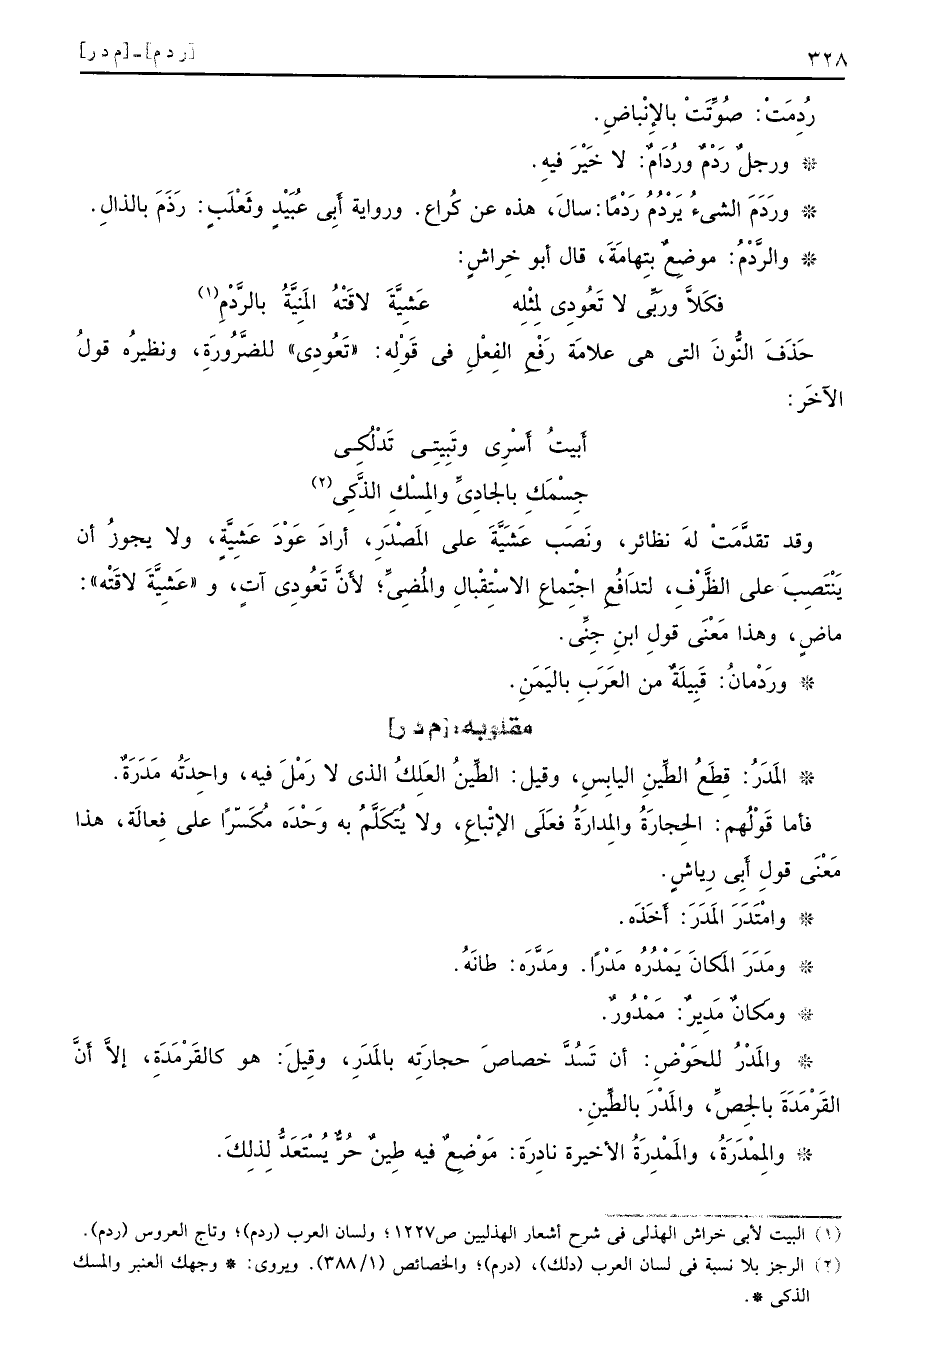 ٣٢٨ [ر د م] - [م د ر]
رُدِمَتْ: صُوِّتَتْ بالإِنْباضِ.
* ورجلٌ رَدْمٌ ورُدَامٌ: لا خَيْرَ فيه.
* ورَدَمَ الشىءُ يَرْدُمُ رَدْمًا: سالَ، هذه عن كُراع. ورواية أبى عُبَيْدٍ وثَعْلَبٍ: رَذَمَ بالذالِ.
* والرَّدْمُ: موضعٌ بتِهامَةَ، قال أبو خِراشٍ:
فكَلاَّ ورَبِّى لا تَعُودِى لمِثْلِه عَشيَّةَ لاقَتْهُ المَنِيَّةُ بالرَّدْمِ(١)
حَذَفَ النُّونَ التى هى علامَة رَفْعِ الفِعْلِ فى قَوْلِه: «تَعُودِى» للضَّرُورَةِ، ونظيرُه قولُ
الآخَر:
أَبيتُ أَسْرِى وتَبِيتِـى تَدْلُكِـى
جِسْمَكِ بالجادِىِّ والمِسْكِ الذَّكِى(٢)
وقد تقدَّمَتْ لهَ نظائر، ونَصَب عَشَيَّةَ على المَصْدَرِ، أرادَ عَوْدَ عَشيَّةٍ، ولا يجوزُ أن
يَنْتَصِبَ على الظَّرْفِ، لتدَافُعِ اجْتِماعِ الاسْتِقْبالِ والمُضىِّ؛ لأنَّ تَعُودِى آتٍ، و «عَشيَّةَ لاقَتْه»:
ماضٍ، وهذا مَعْنَى قولِ ابنِ جنِّى.
* ورَدْمانُ: قَبِيلَةٌ من العَرَبِ باليَمَنِ.
مقلوبه: [م د ر]
* المَدَرُ: قِطَعُ الطِّينِ اليابِسِ، وقيل: الطِّينُ العَلِكُ الذى لا رَمْلَ فيه، واحِدَتُه مَدَرَةٌ.
فأما قَوْلُهم: الحِجارَةُ والمِدارَةُ فعَلَى الإتْباعِ، ولا يُتكَلَّمُ به وَحْدَه مكَسّرًا على فِعالَة، هذا
مَعْنَى قولِ أَبِى رِياشٍ.
* وامْتَدَرَ المَدَرَ: أَخَذَه.
* ومَدَرَ المَكانَ يَمْدُرُه مَدْرًا. ومَدَّرَه: طانَهُ.
* ومَكانٌ مَدِيرٌ: مَمْدُورٌ.
* والمَدْرُ للحَوْضِ: أن تَسُدَّ خصاصَ حجارَتِه بالمَدَرِ، وقِيلَ: هو كالقَرْمَدَةِ، إلاَّ أنَّ
القَرْمَدَةَ بالجِصِّ، والمَدْرَ بالطِّينِ.
* والمِمْدَرَةُ، والمَمْدِرَةُ الأخيرة نادِرَة: مَوْضِعٌ فيه طينٌ حُرٌّ يُسْتَعَدُّ لِذلِكَ.
(١) البيت لأبى خراش الهذلى فى شرح أشعار الهذليين ص١٢٢٧؛ ولسان العرب (ردم)؛ وتاج العروس (ردم).
(٢) الرجز بلا نسبة فى لسان العرب (دلك)، (درم)؛ والخصائص (١/ ٣٨٨). ويروى: * وجهك العنبر والمسك
الذكى *.